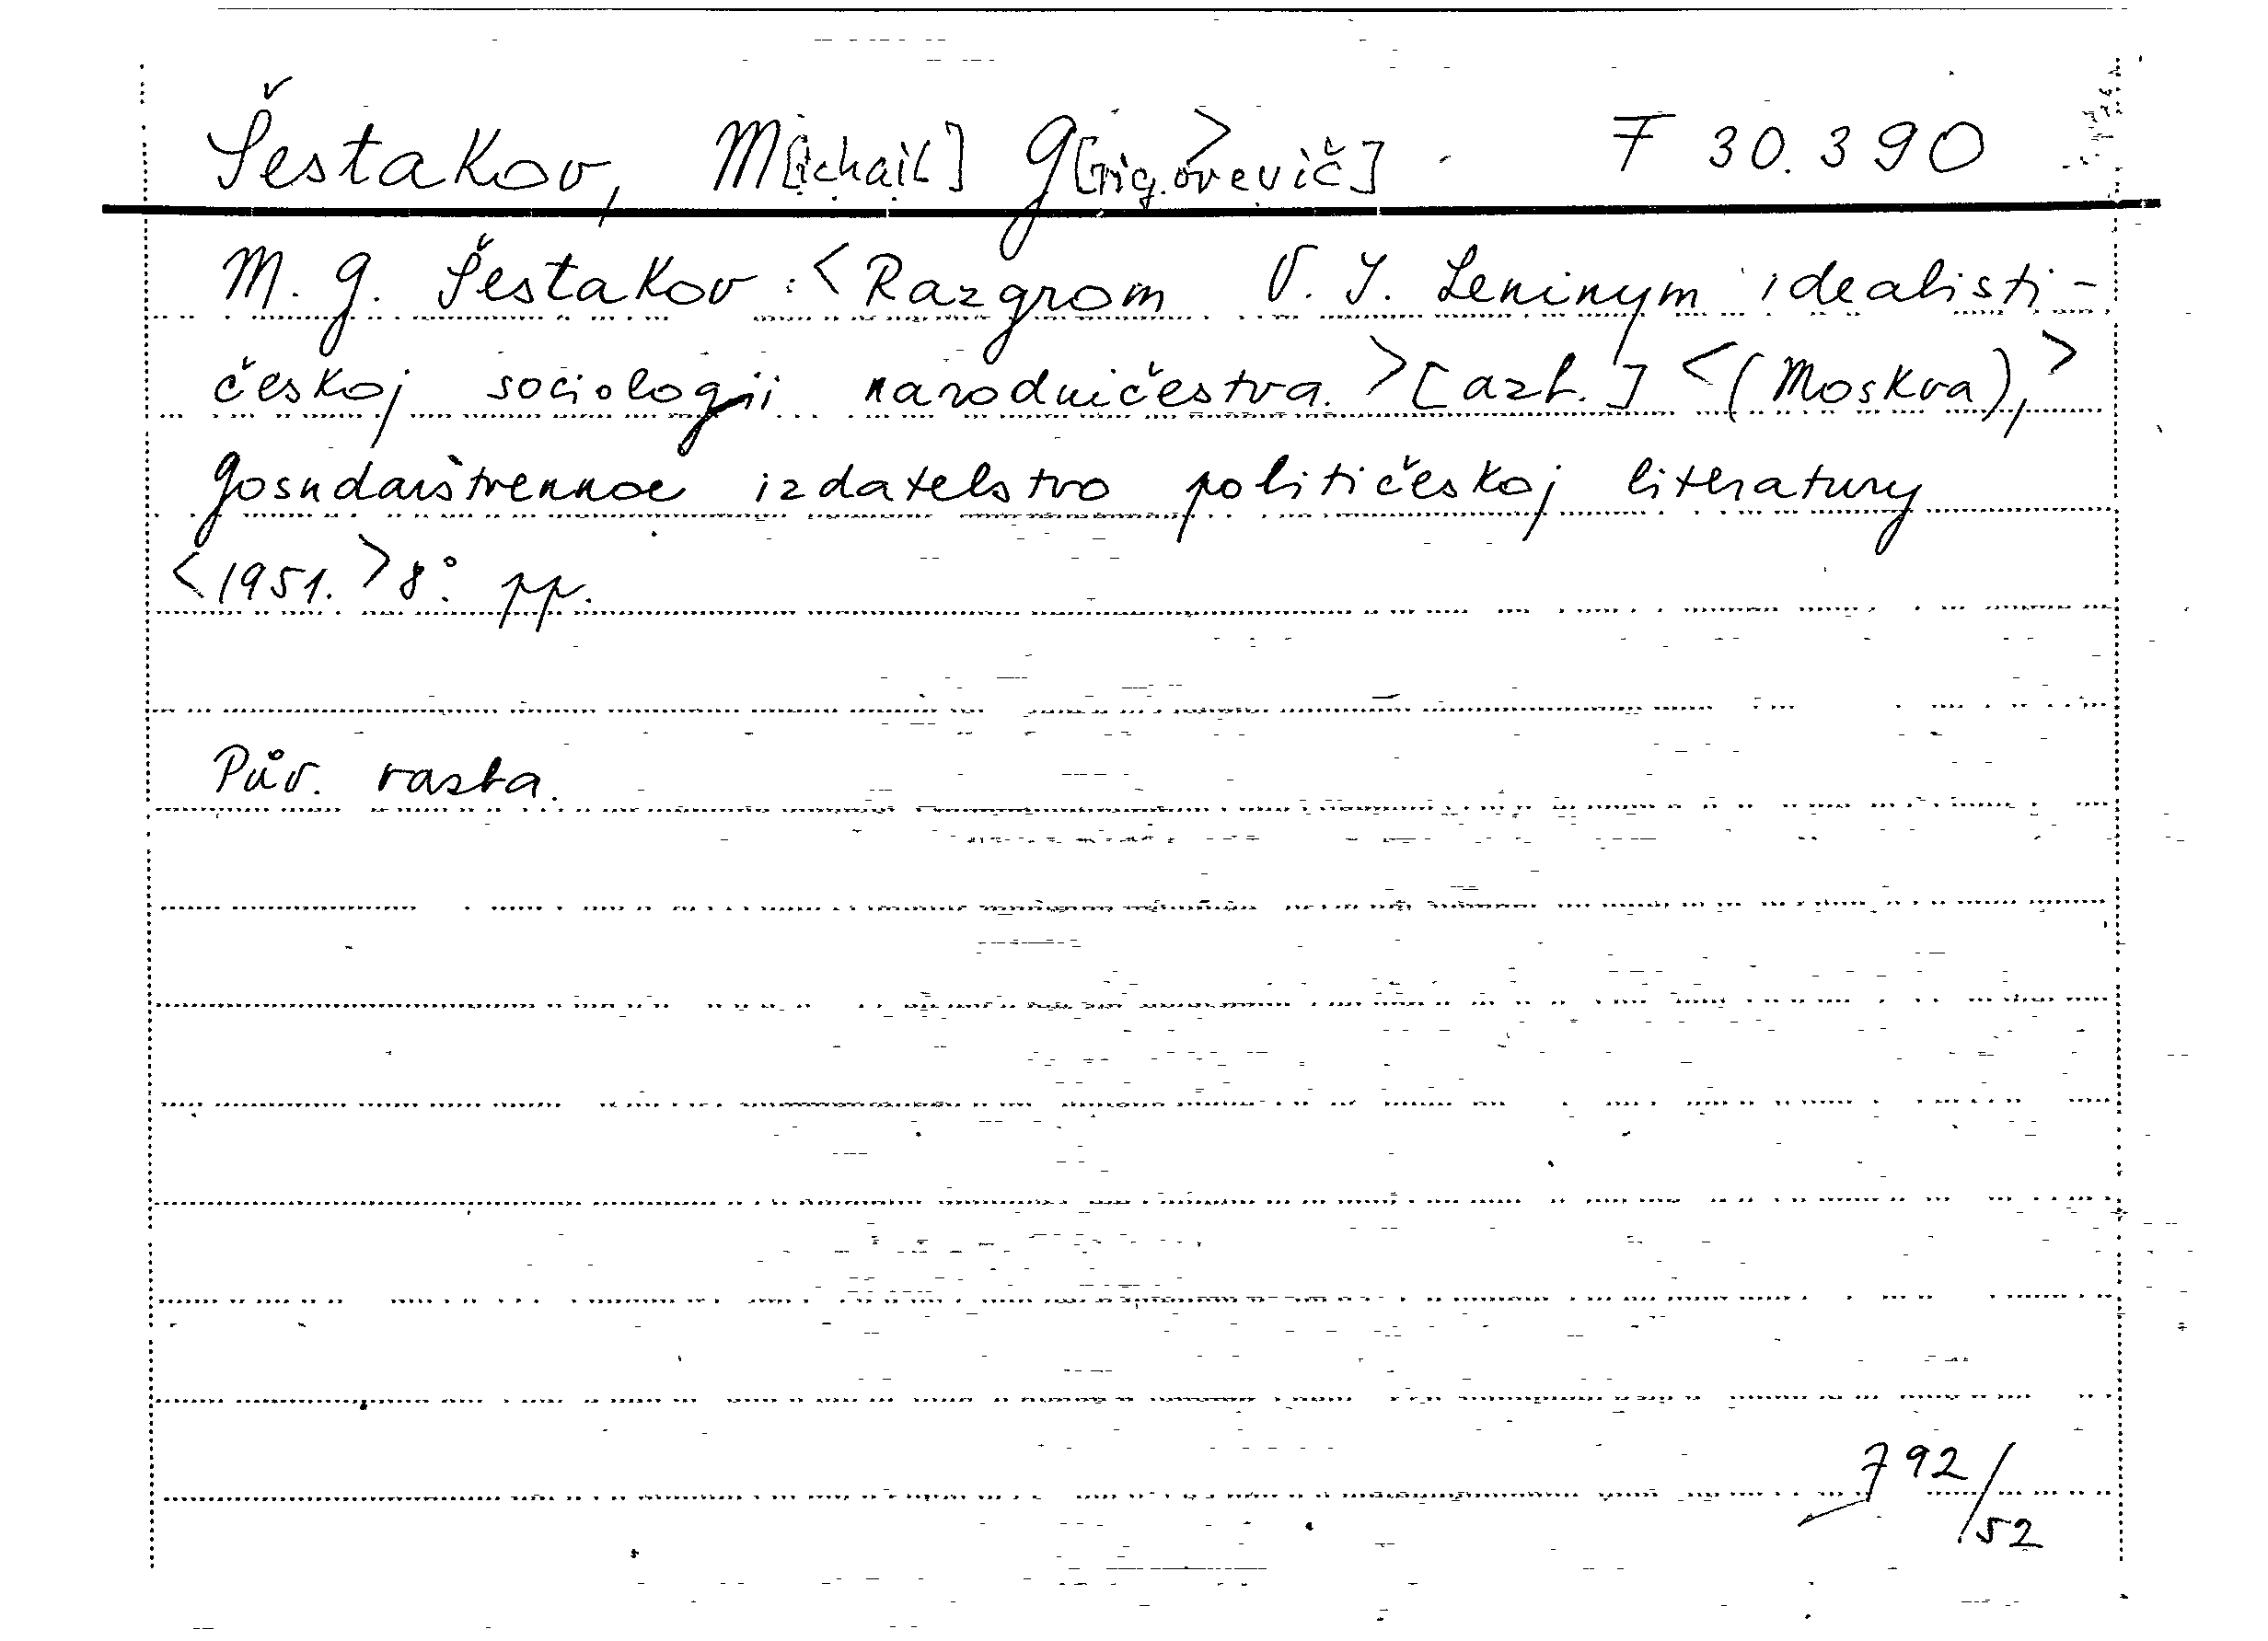 Šestakov, M[ichail] G[rigorevič] F 30.390
M. G. Šestakov: <Razgrom V. I. Leninym idealisti-
českoj sociologii narodničestva.> [azb.] <(Moskva),>
Gosudarstvennoe izdatelstvo političeskoj literatury
<1951.> 8°. pp.
Pův. vazba.
792/52